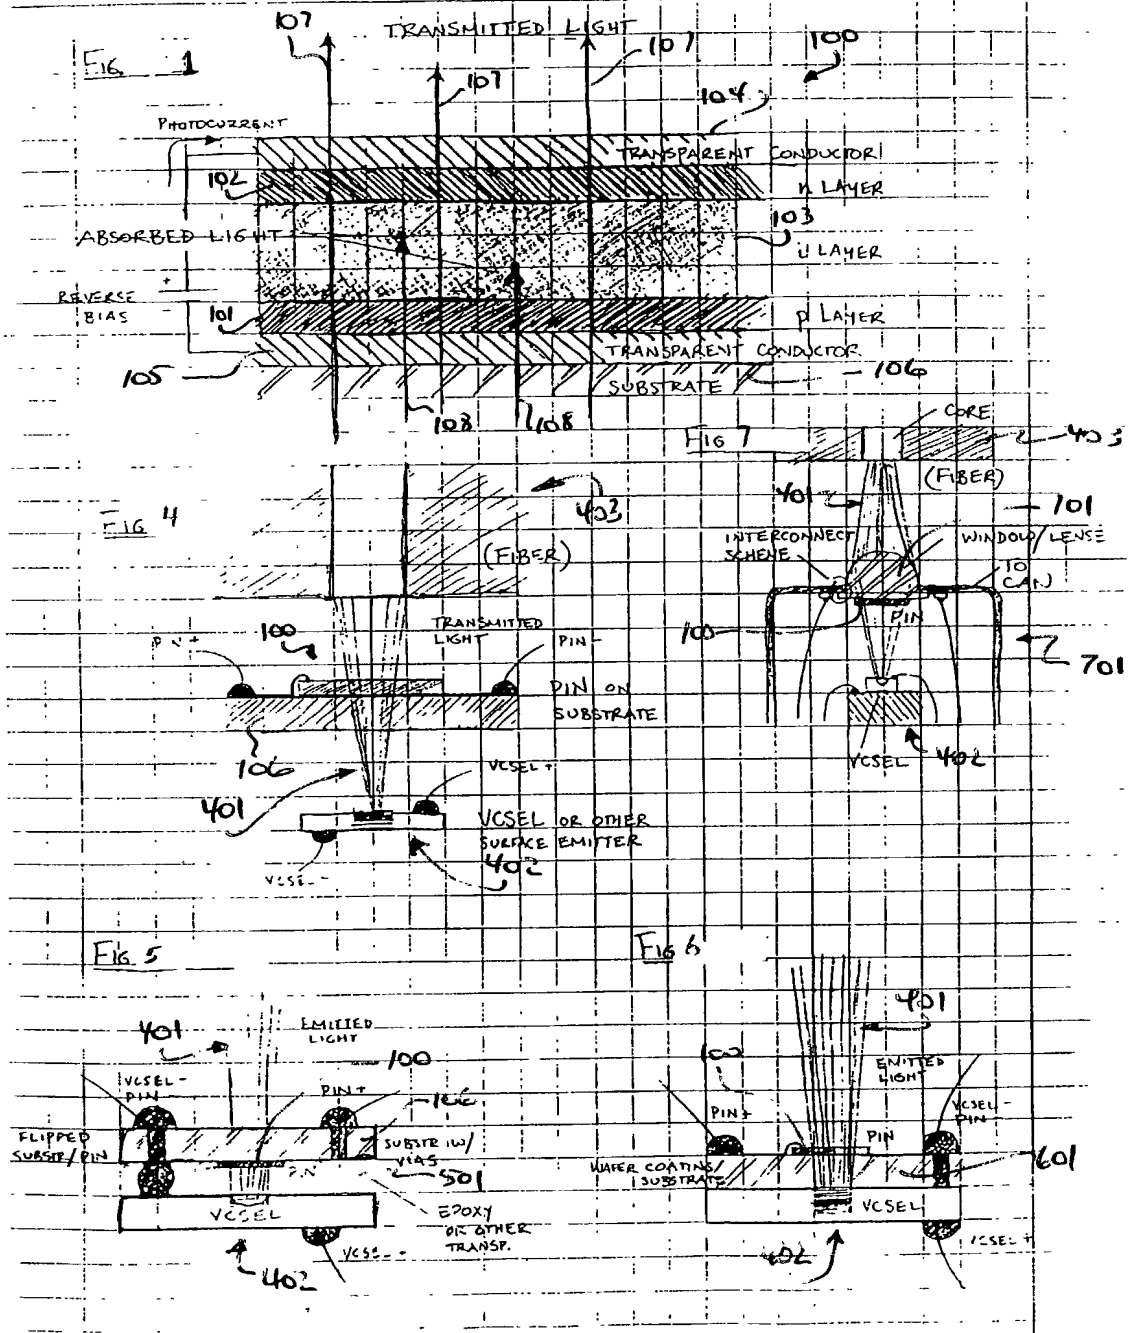 107
TRANSMITTED LIGHT
107
107
100
FIG. 1
104
PHOTOCURRENT
TRANSPARENT CONDUCTOR
102
n LAYER
103
ABSORBED LIGHT
i LAYER
REVERSE
BIAS
+
101
p LAYER
TRANSPARENT CONDUCTOR
105
106
SUBSTRATE
108
108
FIG 7
CORE
403
(FIBER)
401
701
INTERCONNECT
SCHEME
WINDOW/LENSE
TO
CAN
100
PIN
701
VCSEL
402
FIG 4
403
(FIBER)
TRANSMITTED
LIGHT
PIN+
100
PIN-
PIN ON
SUBSTRATE
106
401
VCSEL+
VCSEL OR OTHER
SURFACE EMITTER
402
VCSEL-
FIG 5
401
EMITTED
LIGHT
100
VCSEL-
PIN-
PIN+
106
FLIPPED
SUBSTR/PIN
SUBSTR W/
VIAS
501
PIN
VCSEL
EPOXY
OR OTHER
TRANSP.
402
FIG 6
401
100
EMITTED
LIGHT
PIN+
VCSEL-
PIN-
PIN
WAFER COATING/
SUBSTRATE
601
VCSEL
402
VCSEL+